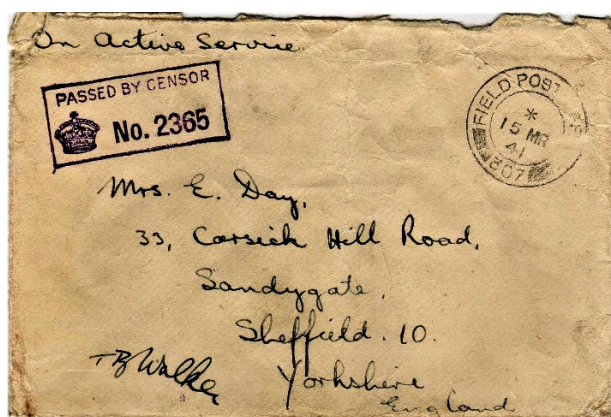 On Active Service
PASSED BY CENSOR
No. 2365
FIELD POST
15 MR
41
402
Mrs. E. Day,
33, Carsick Hill Road,
Sandygate,
Sheffield. 10.
Yorkshire
England
TB Walker